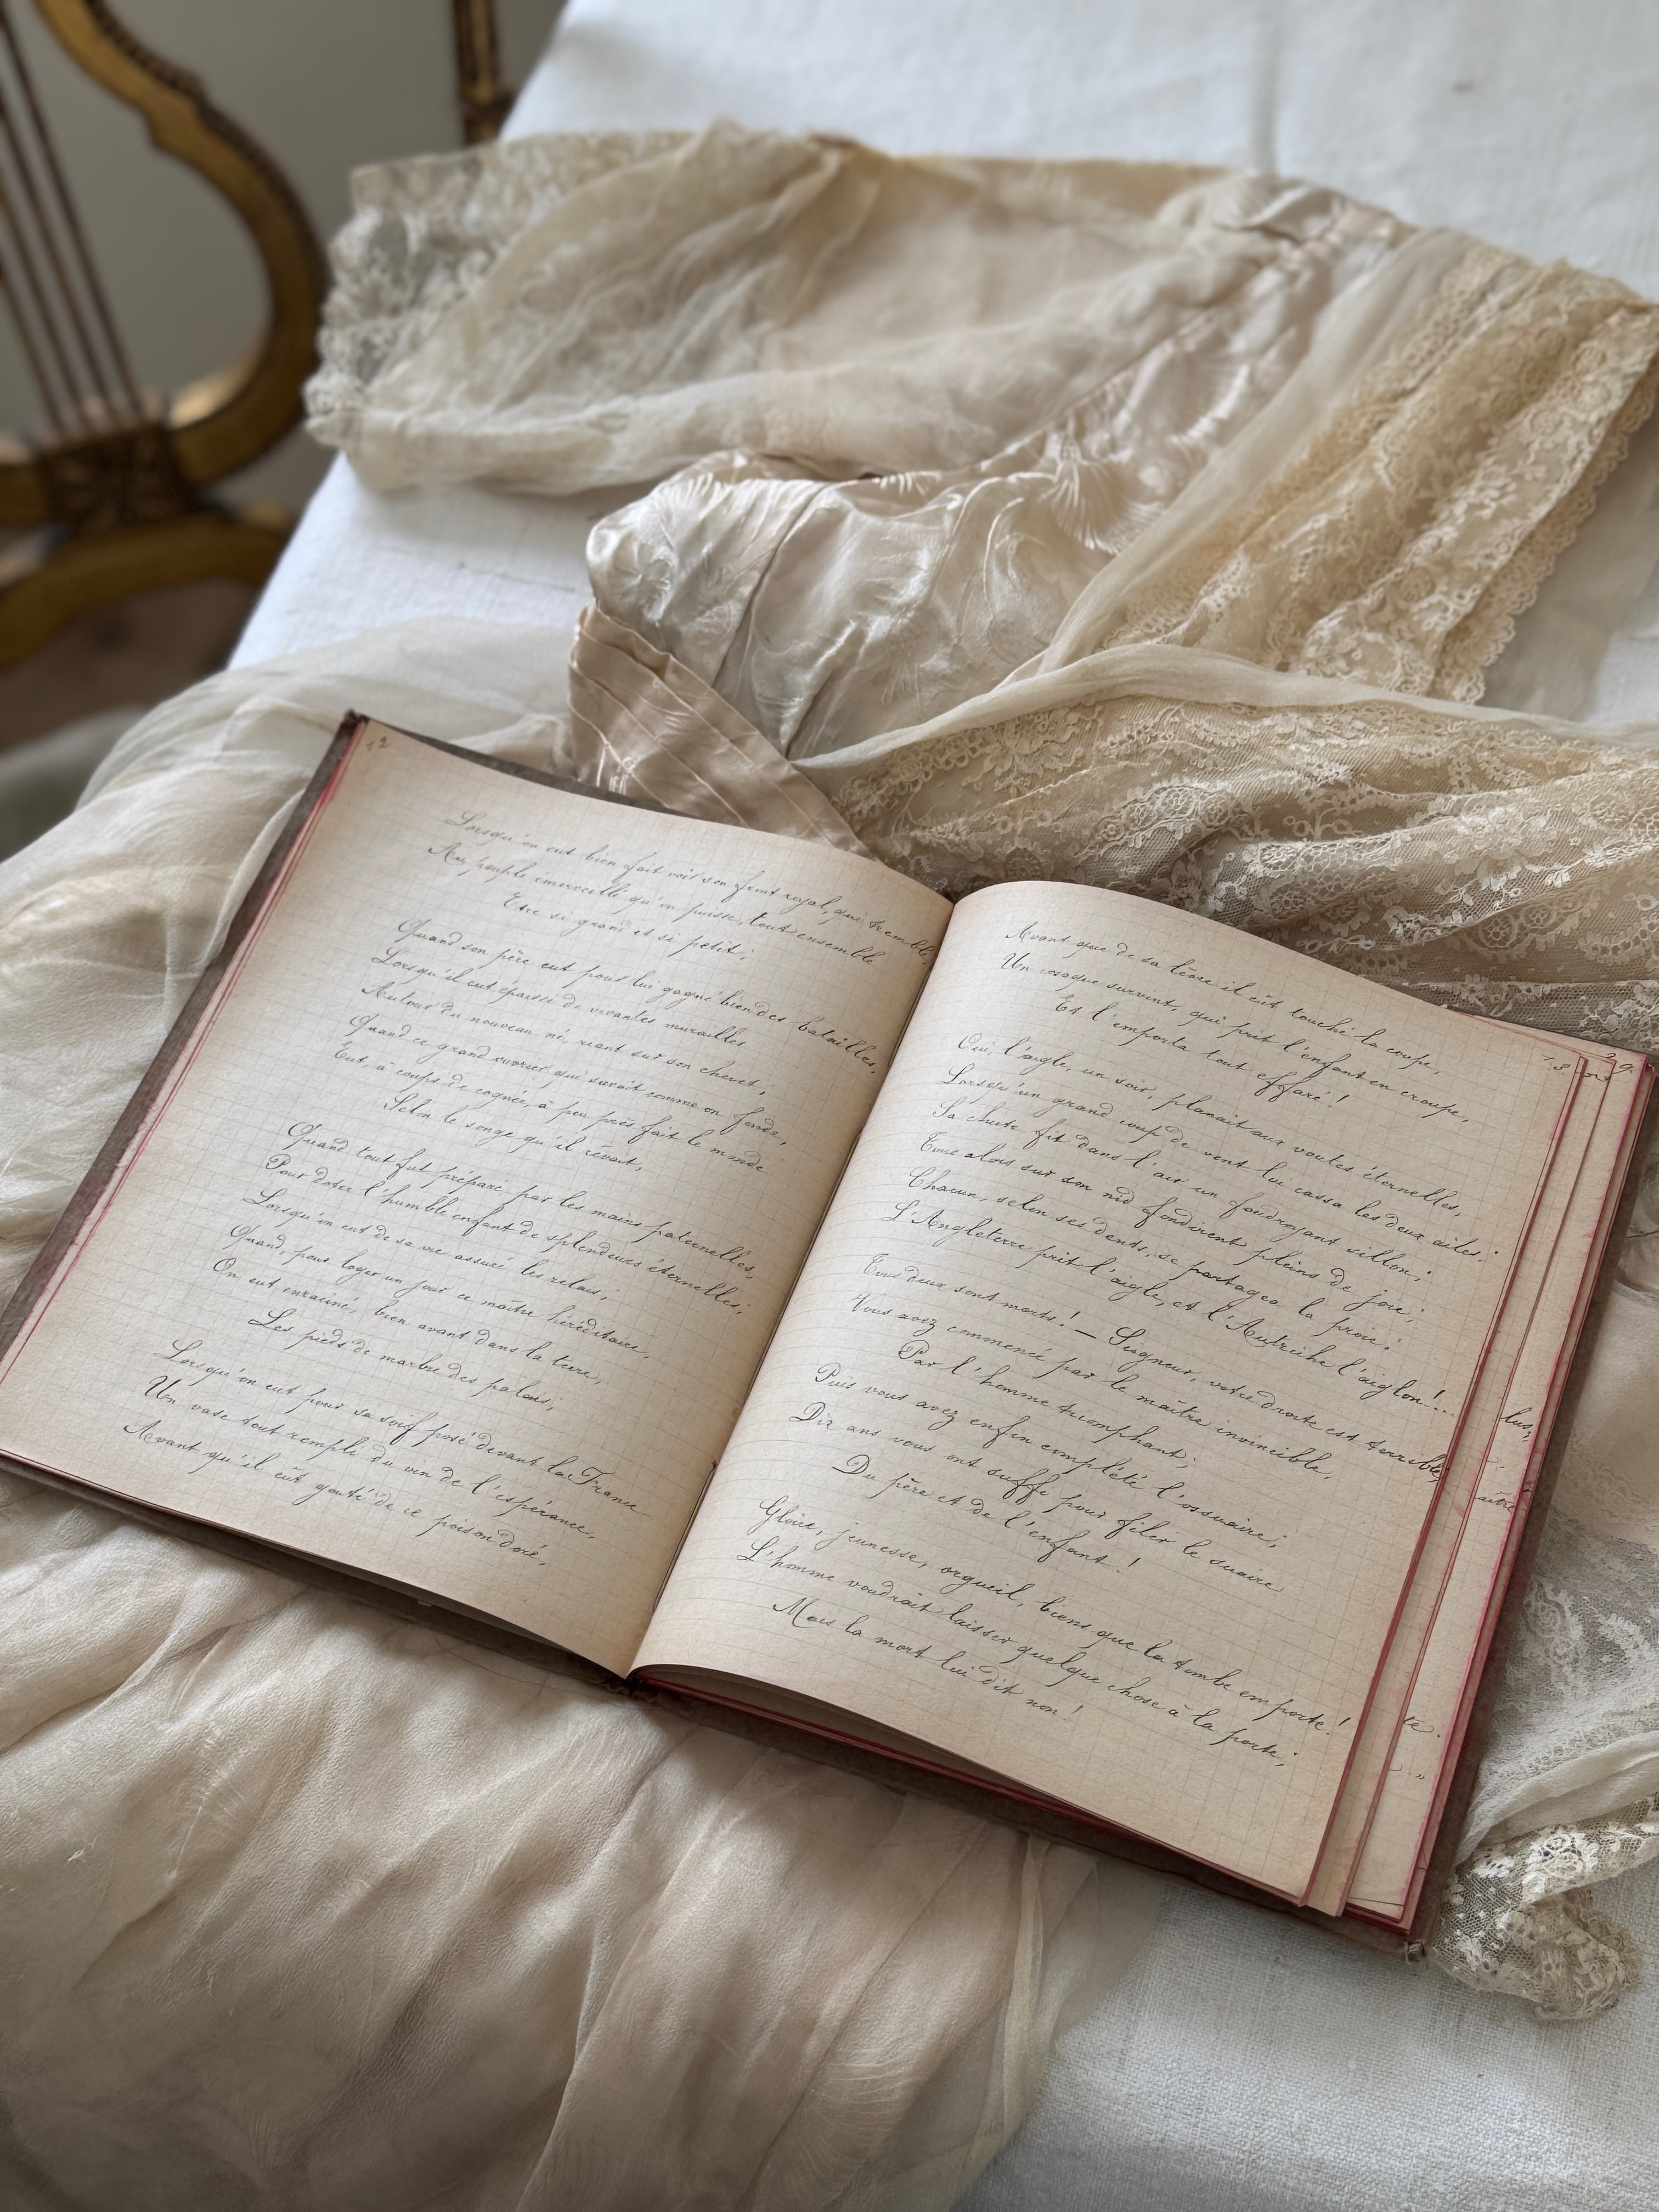 12
Lorsqu'on eut bien fait voir son front royal, qui tremble,
Au peuple émerveillé qu'on puisse, tout ensemble
Être si grand et si petit;
Quand son père eut pour lui gagné bien des batailles,
Lorsqu'il eut épaissi de vivantes murailles
Autour du nouveau né, riant sur son chevet;
Quand ce grand ouvrier qui savait comme on fonde,
Eut, à coups de cognée, à peu près fait le monde
Selon le songe qu'il rêvait,
Quand tout fut préparé par les mains paternelles,
Pour doter l'humble enfant de splendeurs éternelles;
Lorsqu'on eut de sa vie assuré les relais;
Quand, pour loger un jour ce maître héréditaire,
On eut enraciné, bien avant dans la terre,
Les pieds de marbre des palais;
Lorsqu'on eut pour sa soif posé devant la France
Un vase tout rempli du vin de l'espérance,
Avant qu'il eût goûté de ce poison doré,
13
Avant que de sa lèvre il eût touché la coupe,
Un cosaque survint, qui prit l'enfant en croupe,
Et l'emporta tout effaré!
Oui, l'aigle, un soir, planait aux voutes éternelles,
Lorsqu'un grand coup de vent lui cassa les deux ailes:
Sa chute fit dans l'air un foudroyant sillon;
Tous alors sur son nid fondirent pleins de joie;
Chacun, selon ses dents, se partagea la proie:
L'Angleterre prit l'aigle, et l'Autriche l'aiglon!...
Tous deux sont morts! — Seigneur, votre droite est terrible,
Vous avez commencé par le maître invincible,
Par l'homme triomphant;
Puis vous avez enfin complété l'ossuaire;
Dix ans vous ont suffi pour filer le suaire
Du père et de l'enfant!
Gloire, jeunesse, orgueil, biens que la tombe emporte!
L'homme voudrait laisser quelque chose à la porte;
Mais la mort lui dit non!